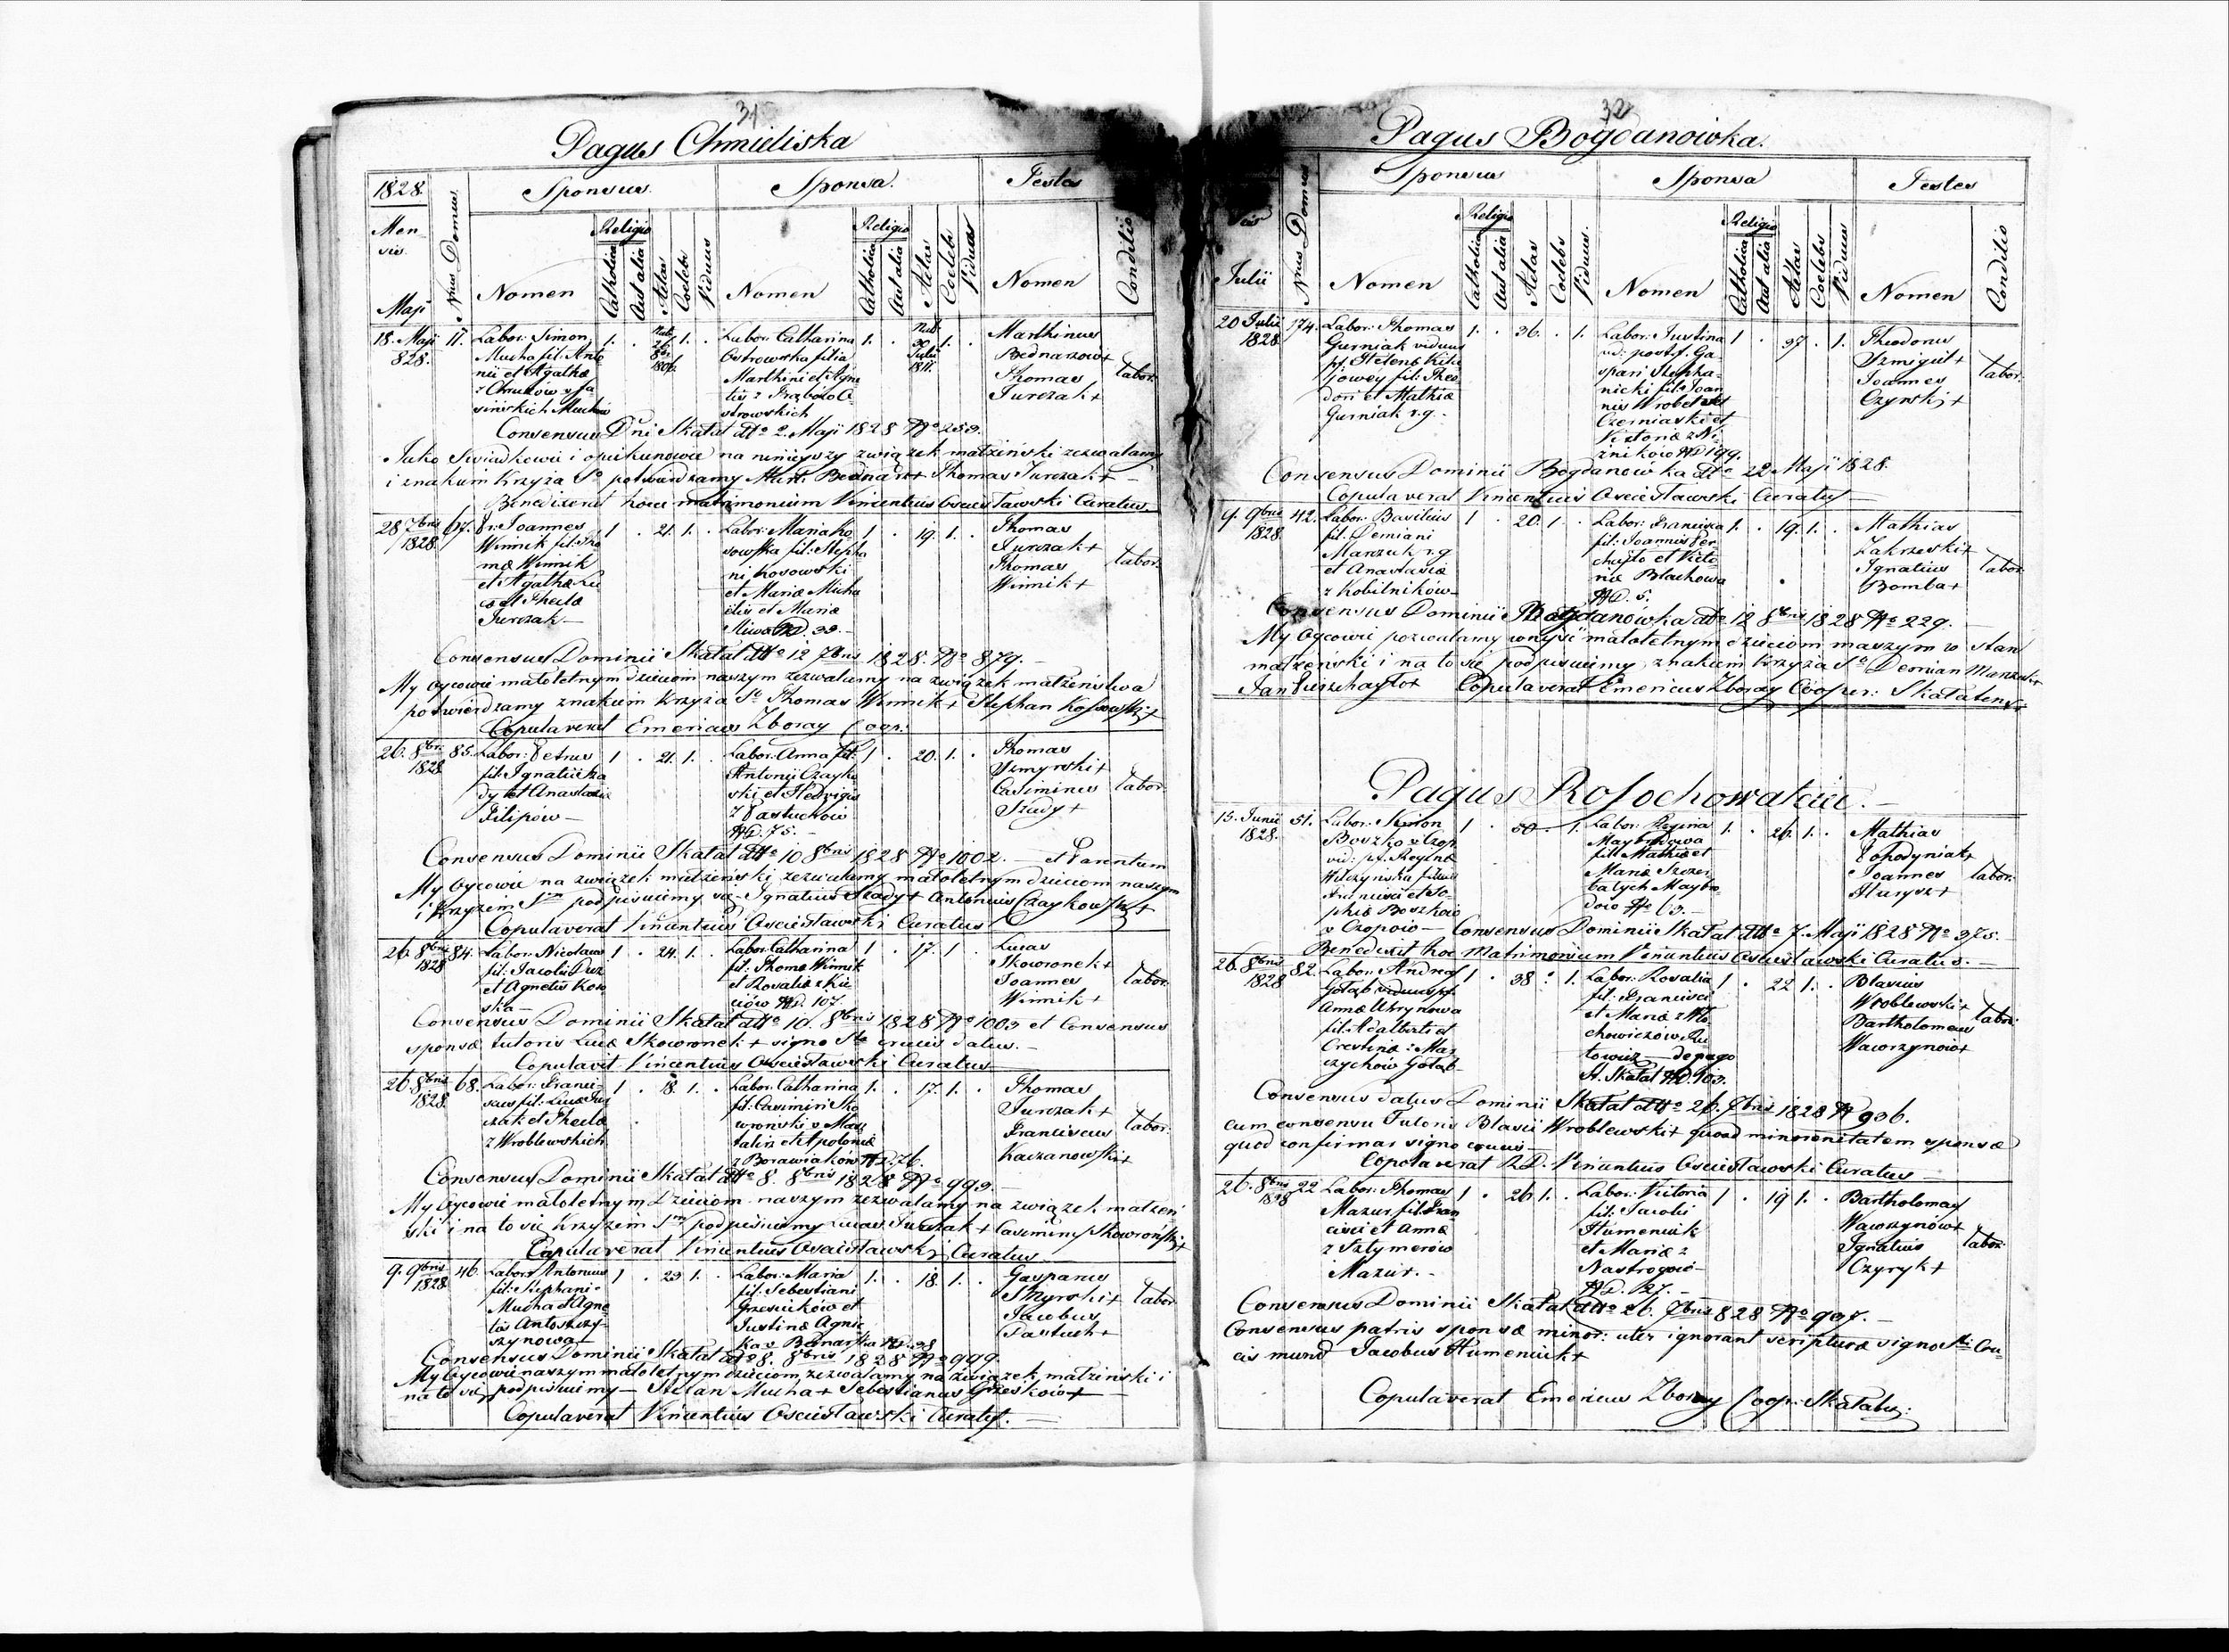 31
Pagus Chmieliska
1828.
Mensis
Maji
Nrus Domus
Sponsus.
Sponsa.
Testes
Nomen
Religio
Catholica
Aut alia
Aetas
Coelebs
Viduus
Nomen
Religio
Catholica
Aut alia
Aetas
Coelebs
Vidua
Nomen
Conditio
18. Maji
828.
17.
Labor: Simon
Mucha fil: Anto
nii et Agathæ
sinskich Mucha
1. . Nat. 26 8br. 1806. 1.
Labor: Catharina
Ostrowska filia
Marthini et Agne
strowskich
1. . Nat. 30 Julii 1811. 1. .
Marthinus
Bednarow+
Thomas
Jurczak+
labor.
Consensus Dni Skałat dtto 2. Maji 1828 No 259.
Jako Swiadkowie i opiekunowie na ninieyszy związek małzeński zezwalamy
i znakiem Krzyża So potwierdzamy Mart: Bednarz+ Thomas Jurczak+ –
Benedixerat hocce matrimonium Vincentius Osciesławski Curatus.
28 7bris
1828.
67.
Joannes
Winnik fil: Tho
mæ Winnik
et Agathæ Lu
cæ et Theclæ
Jurczak –
1 . 21. 1. .
Labor: Maria Ko
sowska fil: Stepha
ni Kosowski
et Mariæ Micha
elis et Mariæ
ND. 39. –
1 . 19. 1. .
Thomas
Jurczak+
Thomas
Winnik+
labor.
Consensus Dominii Skałat dtto 12 7bris 1828. No 879. –
My Oycowie małoletnym dzieciom naszym zezwalamy na związek małzeństwa
potwierdzamy znakiem Krzyża So Thomas Winnik+ Stephan Kosowski+
Copulaverat Emericus Zboray Coop:
26. 8bris
1828
85.
Labor: Petrus
fil: Ignatii Sza
dy et Anastasiæ
Filipów –
1 . 21. 1. .
Labor: Anna fil:
Antonii Czayko
ski et Hedvigis
z Pastuchow
ND. 75. –
1 . 20. 1. .
Thomas
Szmyrski+
Casimirus
Szady+
labor.
Consensus Dominii Skałat dtto 10 8bris 1828 No 1002. – et Parentum
My Oycowie na związek małzeński zezwalamy małoletnym dzieciom naszym
i Krzyzem Sm podpisuiemy się. Ignatius Szady+ Antonius Czaykowski+
Copulaverat Vincentius Osciesławski Curatus
26 8bris
1828
84.
Labor: Nicolaus
fil: Jacobi
et Agnetis Kow
ska –
1 . 24. 1. .
Labor: Catharina
fil: Thomæ Winnik
et Rosaliæ z Kie
ciów ND. 107.
1 . 17. 1 .
Lucas
Skowronek+
Joannes
Winnik+
labor.
Consensus Dominii Skałat dtto 10. 8bris 1828 No 1003 et Consensus
sponsæ tutoris Lucæ Skowronek+ signo Stæ crucis datus. –
Copulavit Vincentius Osciesławski Curatus
26 8bris
1828.
68.
Labor: Franci
scus fil: Lucæ Jur
czak et Theclæ
z Wroblewskich
1 . 18. 1. .
Labor: Catharina
fil: Casimiri Sko
wronski v Mar
talis et Apoloniæ
z Borawiaków ND. 76.
1. . 17. 1. .
Thomas
Jurczak+
Franciscus
Kaczanowski+
labor.
Consensus Dominii Skałat dtto 8. 8bris 1828 No 993. –
My Oycowie małoletnym Dzieciom naszym zezwalamy na związek małzeń
ski i na to się Krzyzem Sm podpisuiemy Lucas Jurczak+ Casimirus Skowroński+
Copulaverat Vincentius Osciesławski Curatus
9. 9bris
1828
46.
Labor: Antonius
fil: Stephani
Mucha et Agne
tis Antoszczy
szynowa
1 . 23 1. .
Labor: Maria
fil: Sebestiani
Grzesieków et
Justinæ Agnie
ka v Bednarska ND. 38
1. . 18. 1. .
Gasparus
Smyrski+
Jacobus
Pastuch+
labor.
Consensus Dominii Skałat dtto 8. 8bris 1828 No 999.
My Oycowie naszym małoletnym dzieciom zezwalamy na związek małzeński i
na to się podpisuiemy – Stefan Mucha+ Sebestianus Grzesków+ –
Copulaverat Vincentius Osciesławski Curatus. –
32
Pagus Bogdanowka.
Julii
Nrus Domus
Sponsus
Sponsa
Testes
Nomen
Religio
Catholica
Aut alia
Aetas
Coelebs
Viduus.
Nomen
Religio
Catholica
Aut alia
Aetas
Coelebs
Vidua
Nomen
Conditio
20 Julii
1828
174.
Labor: Thomas
Gurniak viduus
p.f. Helenæ
jowey fil: Theo
dori et Mathiæ
Gurniak r.g. –
1. . 36. . 1.
Labor: Justina
vid: post f. Ga
spari Stepka
nicki fil: Joan
nis Wrobel
Czerniaski et
Victoriæ z Ni
zników ND 199.
1 . 37 . 1.
Theodorus
Szmigul+
Joannes
Czyrski+
labor.
Consensus Dominii Bogdanowka dto 22 Maji 1828.
Copulaverat Vincentius Osciesławski Curatus –
9. 9bris
1828.
42.
Labor: Basilius
fil: Demiani
Marzuk r.g
et Anastasiæ
z Kobilników –
1 . 20. 1 .
Labor: Francisca
fil: Joannis Per
chayło et Victo
riæ Blachowa
ND. 5.
1. . 19. 1. .
Mathias
Zakrzeski+
Ignatius
Bomba+
labor.
Consensus Dominii Bogdanówka dto 12 8bris 1828 No 229. –
My Oycowie pozwalamy wnyść małoletnym dzieciom naszym w stan
małzeński i na to się podpisuiemy znakiem Krzyża So Demian Marzuk+
Jan Pierzchayło+ Copulaverat Emericus Zboray Cooper: Skałatensis
Pagus Rosochowaciec. –
15. Junii
1828.
51.
Labor: Simon
Boszko v Czop
vid: p.f. Reginæ
Wilczynska filius
Francisci et So
phiæ Boszkow
v Czopow –
1 . 50. . 1.
Labor: Regina
Maybrodowa
fil: Mathiæ et
Mariæ Szczer
batych Maybro
dow No 63. –
1. . 26. 1. .
Mathias
Popodyniak+
Joannes
Hurysz+
labor.
Consensus Dominii Skałat dtto 7. Maji 1828 No 375. –
Benedixit hoc Matrimonium Vincentius Osciesławski Curatus. –
26. 8bris
1828
82.
Labor: Andreas
Gołąb viduus p.f.
Annæ Uhrynowa
fil: Adalberti et
Crestinæ z Mar
czychów Gołąb –
1 . 38 . 1.
Labor: Rosalia
fil: Francisci
et Mariæ z Wło
chowiczów Ru
towicz – de pago
St. Skałat ND. 103.
1 . 22 1. .
Blasius
Wroblewski+
Bartholomeus
Wawrzynow+
labor.
Consensus datus Dominii Skałat dtto 26. 7bris 1828 No 906.
cum consensu Tutoris Blasii Wroblewski+ quoad minorenitatem sponsæ
quod confirmas signo crucis –
Copulaverat R.D. Vincentius Osciesławski Curatus –
26. 8bris
1828
22
Labor: Thomas
Mazur, fil: Fran
cisci et Annæ
z Sztymerów
Mazur. –
1 . 26 1. .
Labor: Victoria
fil: Jacobi
Humeniuk
et Mariæ z
Nastrogow
ND. 127. –
1 . 19 1. .
Bartholomæus
Wawrzynów+
Ignatius
Czyryk+
labor.
Consensus Dominii Skałat dtto 26. 7bris 828 No 907. –
Consensus patris sponsæ minor: uter ignorant scripturæ signo Sti Cru
cis Jacobus Humeniuk+
Copulaverat Emericus Zboray Coop: Skałat: